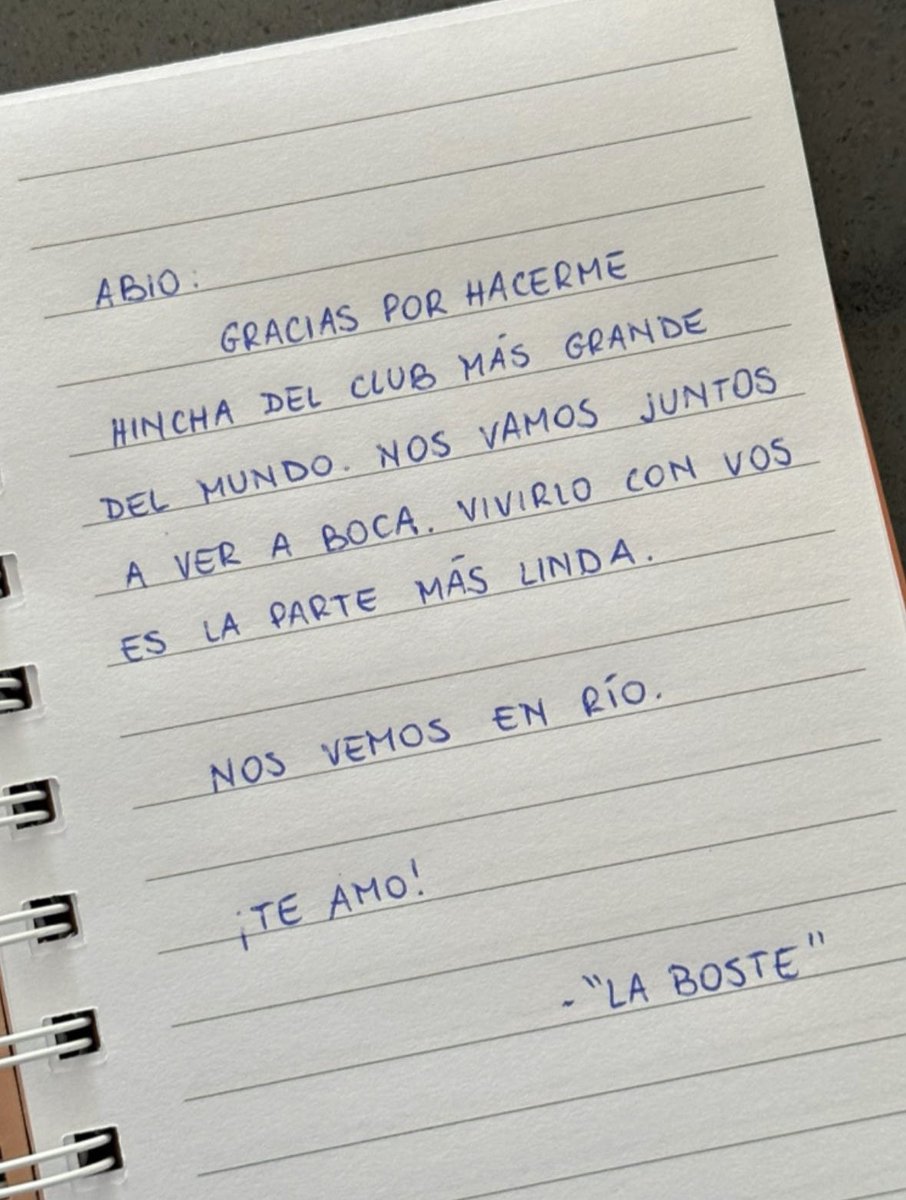 ABIO:
GRACIAS POR HACERME
HINCHA DEL CLUB MÁS GRANDE
DEL MUNDO. NOS VAMOS JUNTOS
A VER A BOCA. VIVIRLO CON VOS
ES LA PARTE MÁS LINDA.
NOS VEMOS EN RÍO.
¡TE AMO!
- "LA BOSTE"